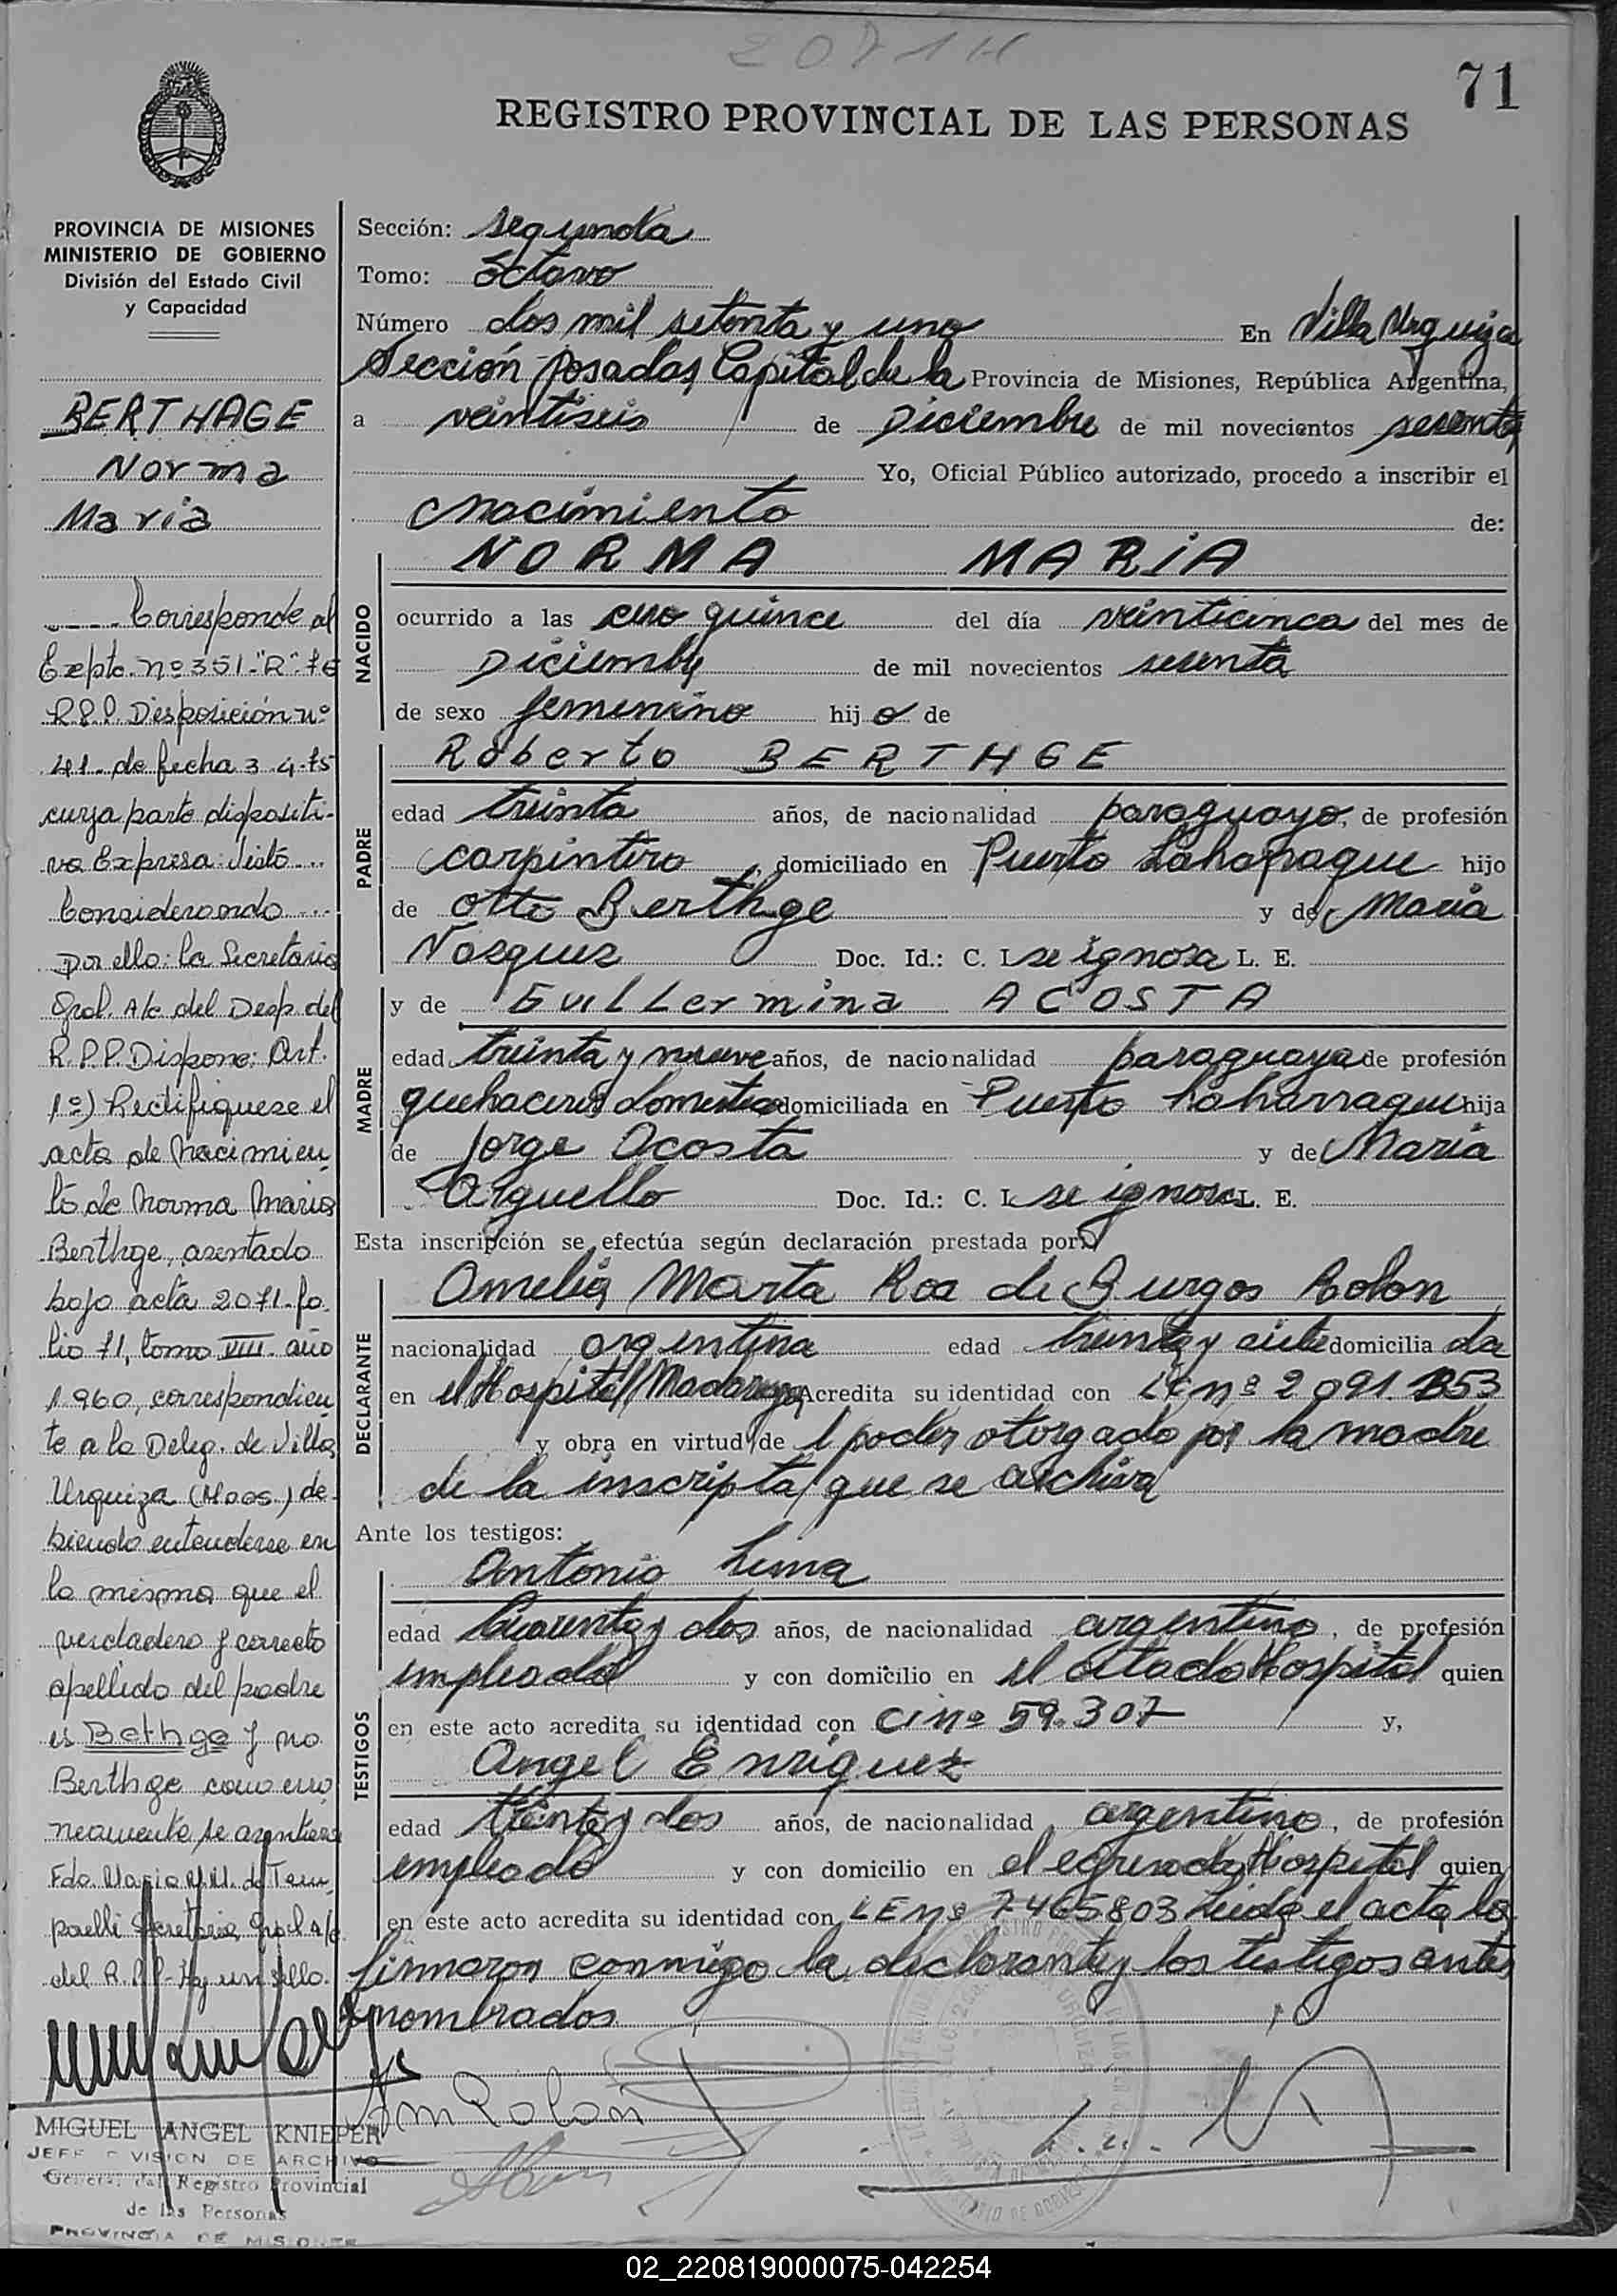 2071 H
71
REGISTRO PROVINCIAL DE LAS PERSONAS
PROVINCIA DE MISIONES
MINISTERIO DE GOBIERNO
División del Estado Civil
y Capacidad
BERTHAGE
Norma
Maria
---- Corresponde al
Expte. nº 351-"R"-76
R.P.P. Disposición nº
41- de fecha 3-4-75
cuya parte dispositi-
va Expresa: Visto...
Considerando...
Por ello: la Secretaria
Gral. A/c del Desp. del
R.P.P. Dispone: Art.
1º) Rectifiquese el
acta de Nacimien
to de Norma Maria
Berthge, asentado
bajo acta 2071-fo
lio 71, tomo VIII- año
1.960, correspondien
te a la Deleg. de Villa
Urquiza (Moos.) de
biendo entenderse en
la misma que el
verdadero y correcto
apellido del padre
es Bethge y no
Berthge como erro
neamente se asentiera
Fdo. Maria M.M. de Tem
porelli Secretaria Gral A/c
del R.P.P- Hay un sello.
MIGUEL ANGEL KNIEPER
JEFE DIVISION DE ARCHIVO
General del Registro Provincial
de las Personas
PROVINCIA DE MISIONES
Sección: segunda
Tomo: Octavo
Número dos mil setenta y uno En Villa Urquiza
Sección Posadas, Capital de la Provincia de Misiones, República Argentina,
a veintiseis de Diciembre de mil novecientos sesenta
Yo, Oficial Público autorizado, procedo a inscribir el
nacimiento de:
NORMA MARIA
NACIDO
ocurrido a las cero quince del día veinticinco del mes de
Diciembre de mil novecientos sesenta
de sexo femenino hij a de
PADRE
Roberto BERTHGE
edad treinta años, de nacionalidad paraguayo, de profesión
carpintero, domiciliado en Puerto Lahapague hijo
de Otto Berthge y de Maria
Vasquez Doc. Id.: C. I. se ignora L. E.
MADRE
y de Guillermina ACOSTA
edad treinta y nueve años, de nacionalidad paraguaya de profesión
quehaceres domesticos domiciliada en Puerto Laharrague hija
de Jorge Acosta y de Maria
Arguello Doc. Id.: C. I. se ignora L. E.
Esta inscripción se efectúa según declaración prestada por:
DECLARANTE
Amelia Marta Roa de Burgos Rolon
nacionalidad argentina edad treinta y siete domicilia da
en el Hospital Madariaga Acredita su identidad con LC nº 2091.853
y obra en virtud de l poder otorgado por la madre
de la inscripta que se archiva
Ante los testigos:
TESTIGOS
Antonio Luna
edad Cuarenta y dos años, de nacionalidad argentino, de profesión
empleado y con domicilio en el citado Hospital quien
en este acto acredita su identidad con CI nº 59.307 y,
Angel Enriquez
edad treinta y dos años, de nacionalidad argentino, de profesión
empleado y con domicilio en el expresado Hospital quien
en este acto acredita su identidad con LE nº 7465803 Leida el acta la
firmaron conmigo la declarante y los testigos antes
nombrados
Am Rolon
02_220819000075-042254